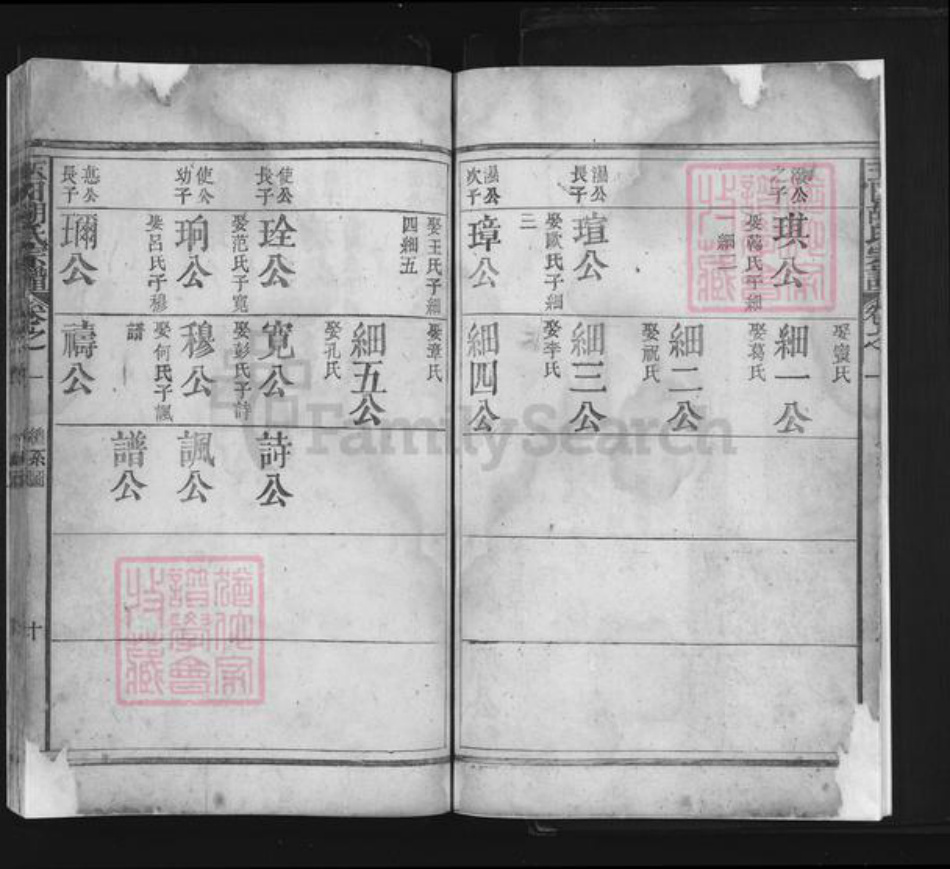 公
之子
琪公
娶 氏子細
一細二
湯公
長子
瑄公
娶歐氏子細
三
湯公
次子
璋公
娶 氏
細一公
娶葛氏
細二公
娶祝氏
細三公
娶李氏
細四公
娶王氏子細
四細五
使公
長子
珓公
娶范氏子寬
使公
幼子
珦公
娶呂氏子穆
公
長子
珎公
娶章氏
細五公
娶孔氏
寬公
娶彭氏子詩
穆公
娶何氏子諷
譜
禱公
詩公
諷公
譜公
胡氏宗譜
卷之一
系圖
十
猶他家
譜學會
收藏
FamilySearch